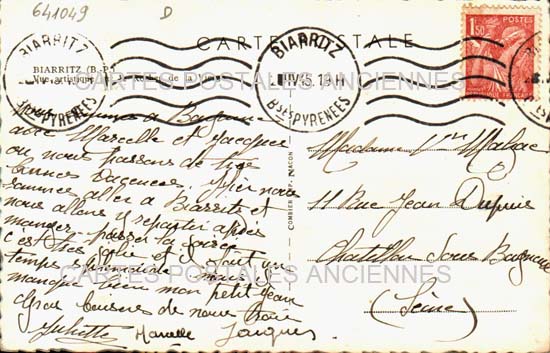 641049 D
CARTE POSTALE
BIARRITZ
BSES PYRENEES
BIARRITZ
BSES PYRENEES
POSTES
1F50
BIARRITZ (B.-P.)
Vue artistique du Rocher de la Vierge
CARTES POSTALES ANCIENNES
Nous sommes à Bayonne
avec Marcelle et Jacques
où nous passons de très
bonnes vacances. Hier nous
sommes allés à Biarritz et
nous allons y repartir après
manger passer la soirée
c'est très et il fait un
temps mais il
manque bien mon petit Jean
Gros baisers de nous trois
Juliette Marcelle Jacques
COMBIER IMP. MACON
Madame
11 Rue Jean Dupuis
Chatillon Sous Bagneux
(Seine)
CARTES POSTALES ANCIENNES